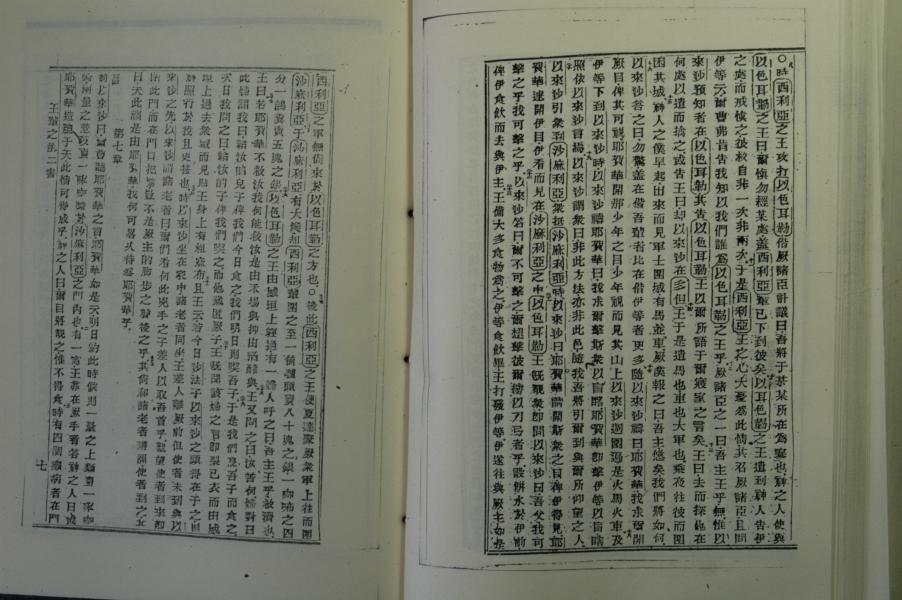 ○時西利亞之王攻打以色耳勒偕厥諸臣計議曰吾將于某某所在為寨也神之人使與
以色耳勒之王曰爾慎勿經某處蓋西利亞輩已下到彼矣以色耳勒之王遣到神人告伊
之處而戒慎之後救自非一次非兩次于是西利亞王之心大憂為此情其召厥諸臣且問
伊等云爾曹弗肯告我知以我們誰為以色耳勒之王乎厥諸臣之一曰吾主王乎無惟以
來沙預知者在以色耳勒其告以色耳勒王以爾所語于爾寢室之言矣王曰去而探他在
何處以遣而擒之或告王曰却以來沙在多但王于是遣馬也車也大軍也乘夜往彼而圍
困其城神人之僕早起出來而見軍士圍城有馬並車厥僕報之曰吾主悠矣我們將如何
以來沙答之曰勿驚蓋在偕吾輩者比在偕伊等者更多隨以來沙禱曰耶賀華我求爾開
厥目俾其可觀耶賀華開那少年之目少年視而見其山上以來沙週圍遍是火馬火車及
伊等下到以來沙時以來沙禱耶賀華曰我求爾擊斯衆以盲瞎耶賀華即擊伊等以盲瞎
照依以來沙之言以來沙謂衆曰非此方法亦非此邑隨我吾將引爾到與爾所仰望之人
以來沙引衆到沙麻利亞衆抵沙麻利亞時以來沙曰耶賀華請開斯衆之目俾伊得見耶
賀華遂開伊目伊看而見在沙麻利亞之中以色耳勒王既覩衆即問以來沙曰吾父我可
擊之乎我可擊之乎以來沙答曰爾不可擊之爾想擊彼爾擄以刀弓者乎設餅水於伊前
俾伊食飲而去與伊主王備大多食物為之伊等食飲畢王打發伊等伊遂往與厥主如是
西利亞之軍無復來於以色耳勒之方也○後此西利亞之王便夏達聚厥衆軍上往而圍
沙麻利亞于沙麻利亞有大饑却西利亞輩圍之至一個驢頭賣八十塊之銀一咖唏之四
分一鴿糞賣五塊之銀以色耳勒之王由城垣上經過有一婦人呼之曰吾主王乎救濟也
王曰若耶賀華不救汝我何能救汝是由禾場與抑由酒醡與王又問之曰汝苦何婦對曰
此婦謂我曰給汝的兒子俾我們今日食之我們明日則吃吾子于是我們烹吾子而食之
次日我問之曰給汝的子俾我們吃之而他藏厥子王既聞該婦之言即裂己衣而由城
垣上過去衆視而見貼王身上有粗麻布且王云若今日沙法子以來沙之頭得在于之則
神照行於我且更甚也時以來沙坐在家中諸老者同坐王差人離厥前但使者未到與以
來沙之先以來沙謂諸老者曰爾們看何此兇手之子差人以取吾首乎觀望使者到來即
閉此門而在門口把拿豈不是厥主的脚步之聲後之乎其尙和諸老者講開使者到之夫
曰夫此禍是由耶賀華我何為久待為耶賀華乎
第七章
時以來沙曰爾曹聽耶賀華之言耶賀華如是云明日約此時候則一量之上麵賣一咖
唏兩量之麥賣一咖唏於沙麻利亞之門內也有一憲王靠在厥手者答神人曰或
耶賀華造窗于天此情可得成乎神之人曰爾目將覩之惟不得食時有四個癩病者在門
王紀之第二書
七